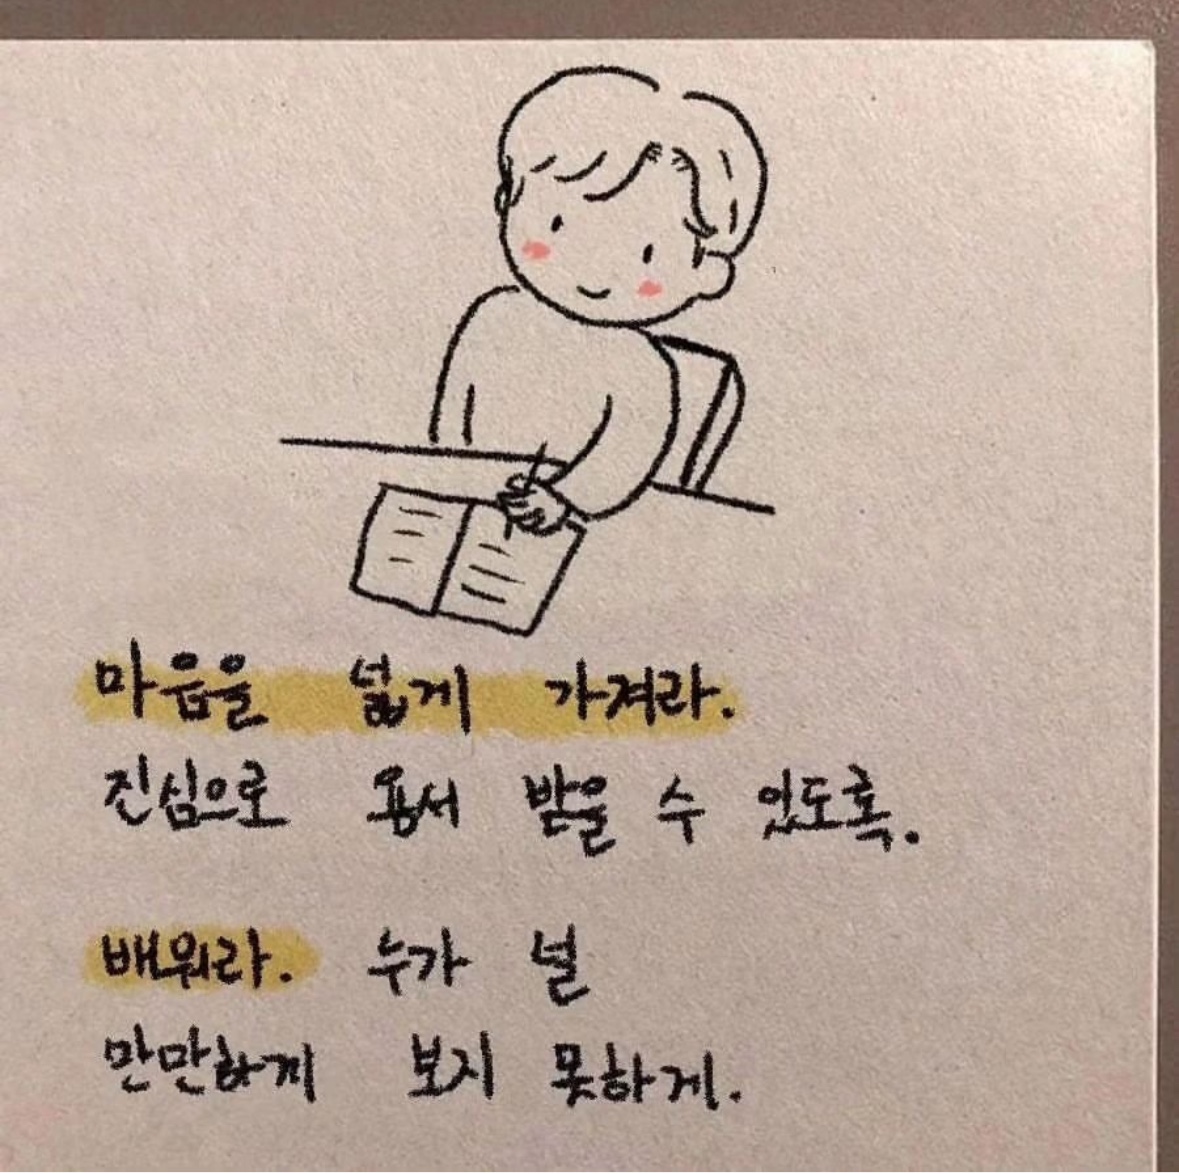 마음을 넓게 가져라.
진심으로 용서 받을 수 있도록.
배워라. 누가 널
만만하게 보지 못하게.